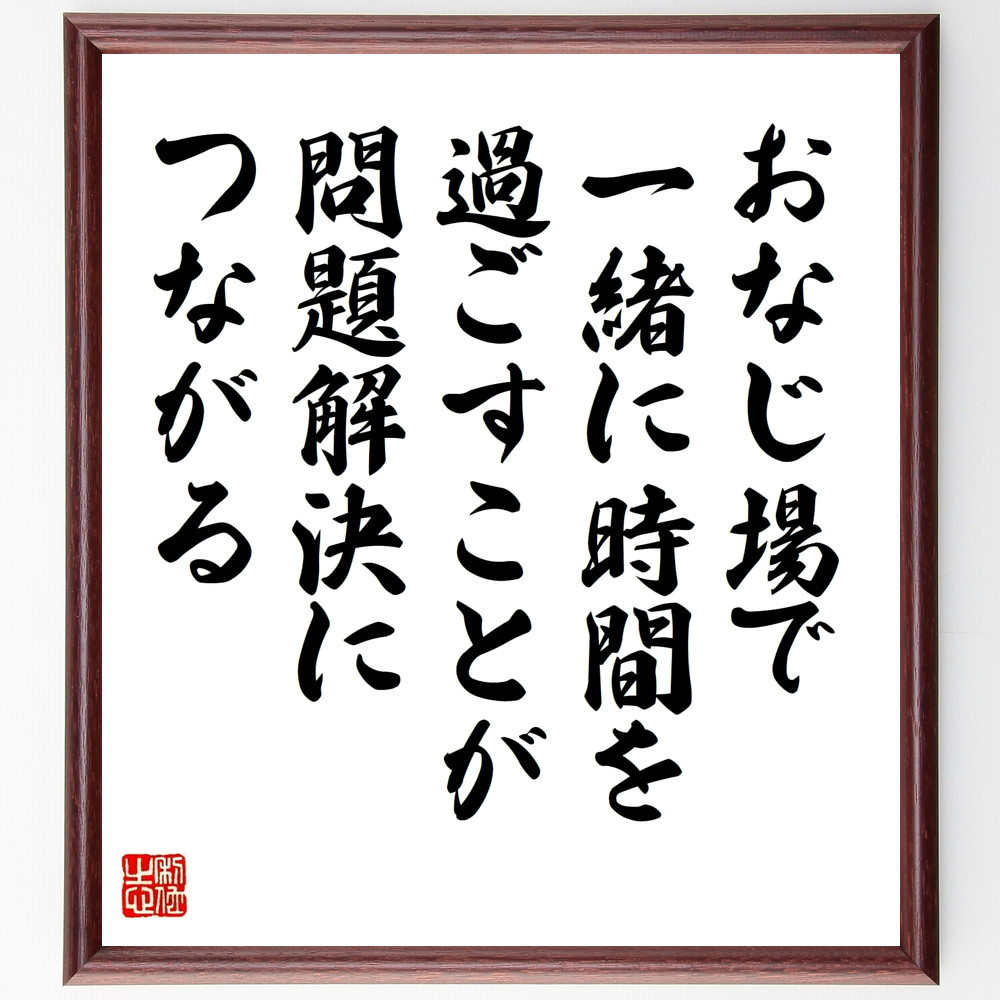 おなじ場で
一緒に時間を
過ごすことが
問題解決に
つながる